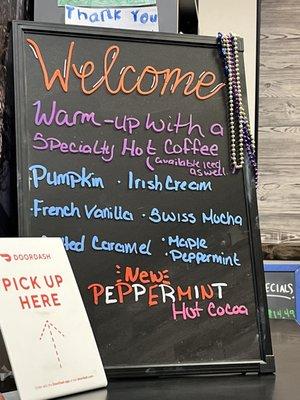 Thank You
Welcome
Warm-up with a
Specialty Hot Coffee
(available iced
as well
Pumpkin · Irish Cream
French Vanilla · Swiss Mocha
Caramel · Maple
Peppermint
New
PEPPERMINT
Hot Cocoa
DOORDASH
PICK UP
HERE
ECIALS
14.49